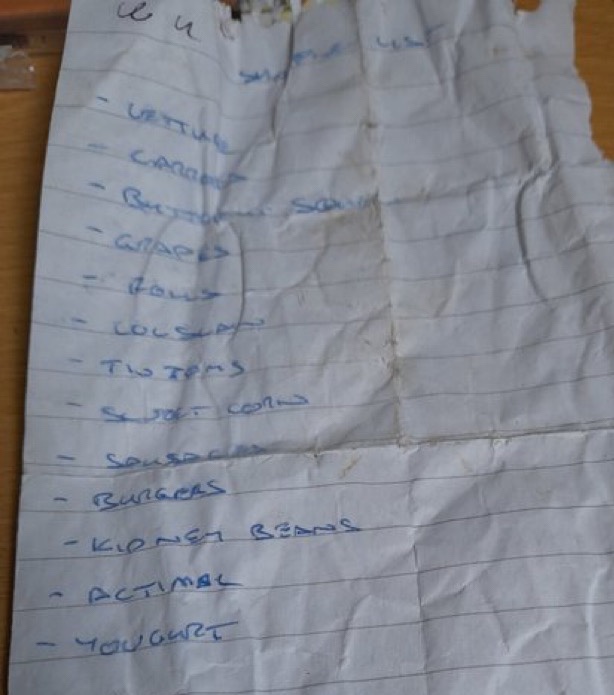 SHOPPING LIST
- LETTUCE
- CARROTS
- BUTTERNUT SQUASH
- GRAPES
- ROLLS
- COLSLAW
- TIN TOMS
- SWEET CORN
- SAUSAGES
- BURGERS
- KIDNEY BEANS
- ACTIMAL
- YOUGURT